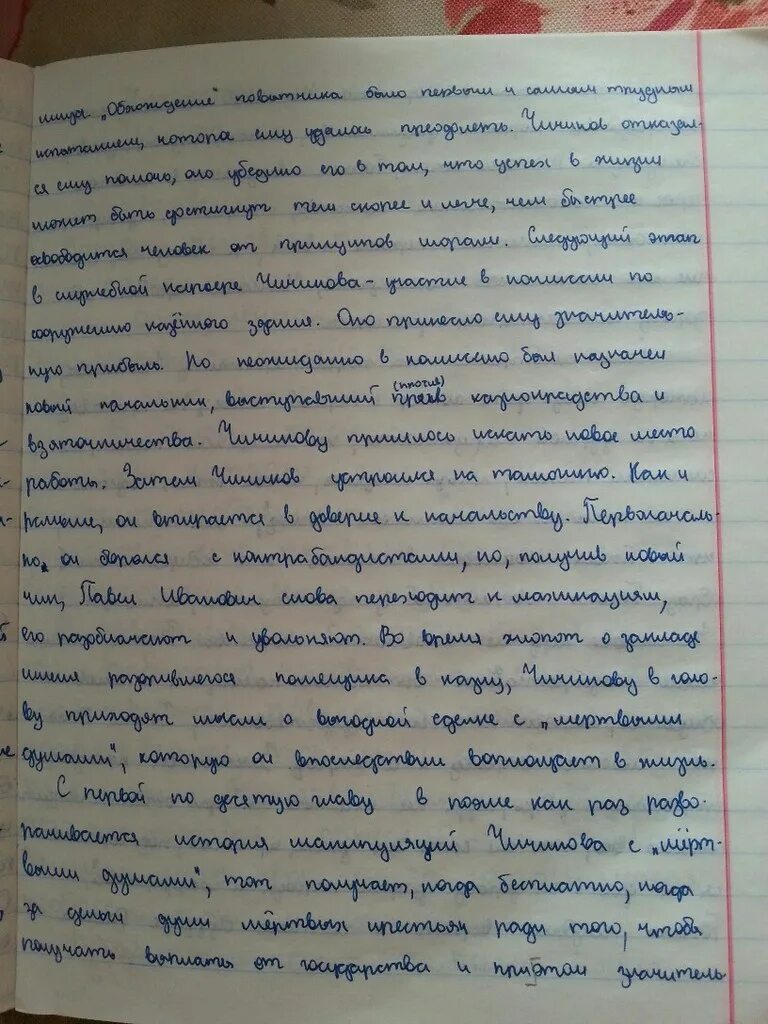 лища. „Обхождение" повытчика было первым и самым трудным
испытанием, котора ему удалось преодолеть. Чичиков отказал-
ся ему помочь, это убедило его в том, что успех в жизни
может быть достигнут тем скорее и легче, чем быстрее
освободится человек от принципов морали. Следующий этап
в служебной карьере Чичикова - участие в комиссии по
сооружению казённого здания. Это принесло ему значитель-
ную прибыль. Но неожиданно в комиссию был назначен
новый начальник, выступавший (против) казнокрадства и
взяточничества. Чичикову пришлось искать новое место
работы. Затем Чичиков устроился на таможню. Как и
раньше, он втирается в доверие к начальству. Первоначаль-
но, он боролся с контрабандистами, но, получив новый
чин, Павел Иванович снова переходит к махинациям,
его разоблачают и увольняют. Во время хлопот о закладе
имения разорившегося помещика в казну, Чичикову в голо-
ву приходят мысли о выгодной сделке с „мертвыми
душами", которую он впоследствии воплощает в жизнь.
С первой по десятую главу в поэме как раз разво-
рачивается история манипуляций Чичикова с „мёрт-
выми душами", тот получает, когда бесплатно, когда
за деньги души мёртвых крестьян ради того, чтобы
получать выплаты от государства и при этом значитель